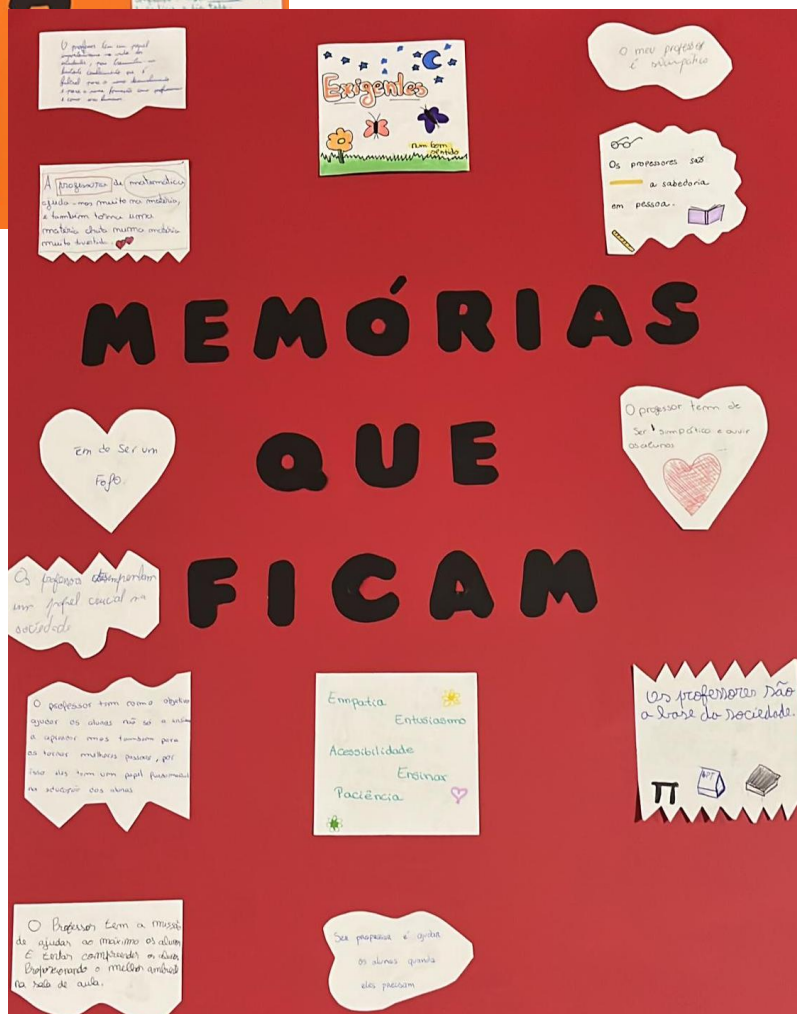 O professor tem um papel
importantíssimo na vida do
O meu professor
é simpático
Exigentes
num bom
sentido
Os professores são
a sabedoria
em pessoa.
A professora de matemática
ajuda-nos muito na matéria,
e também torna uma
matéria chata numa matéria
muito divertida.
MEMÓRIAS
QUE
FICAM
Em de Ser um
Fofo.
O professor tem de
Ser simpático e ouvir
os alunos
Os professores desempenham
um papel crucial na
sociedade
O professor tem como objetivo
ajudar os alunos não só a
a aprender mas também para
os tornar melhores pessoas, por
isso eles tem um papel fundamental
na educação dos alunos
Empatia
Entusiasmo
Acessibilidade
Ensinar
Paciência
Os professores são
a base da sociedade.
O Professor tem a missão
de ajudar ao máximo os alunos
E tentar compreender os alunos
Proporcionando o melhor ambiente
na sala de aula.
Ser professor é ajudar
os alunos quando
eles precisam